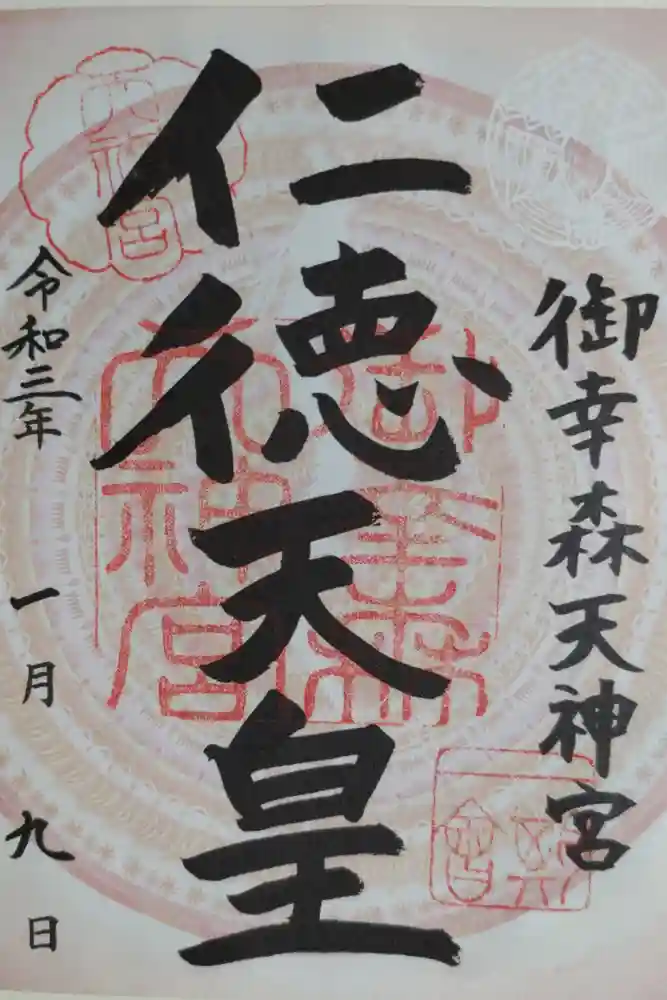 御幸森天神宮
仁徳天皇
令和三年一月九日
天神宮
御幸森天神宮